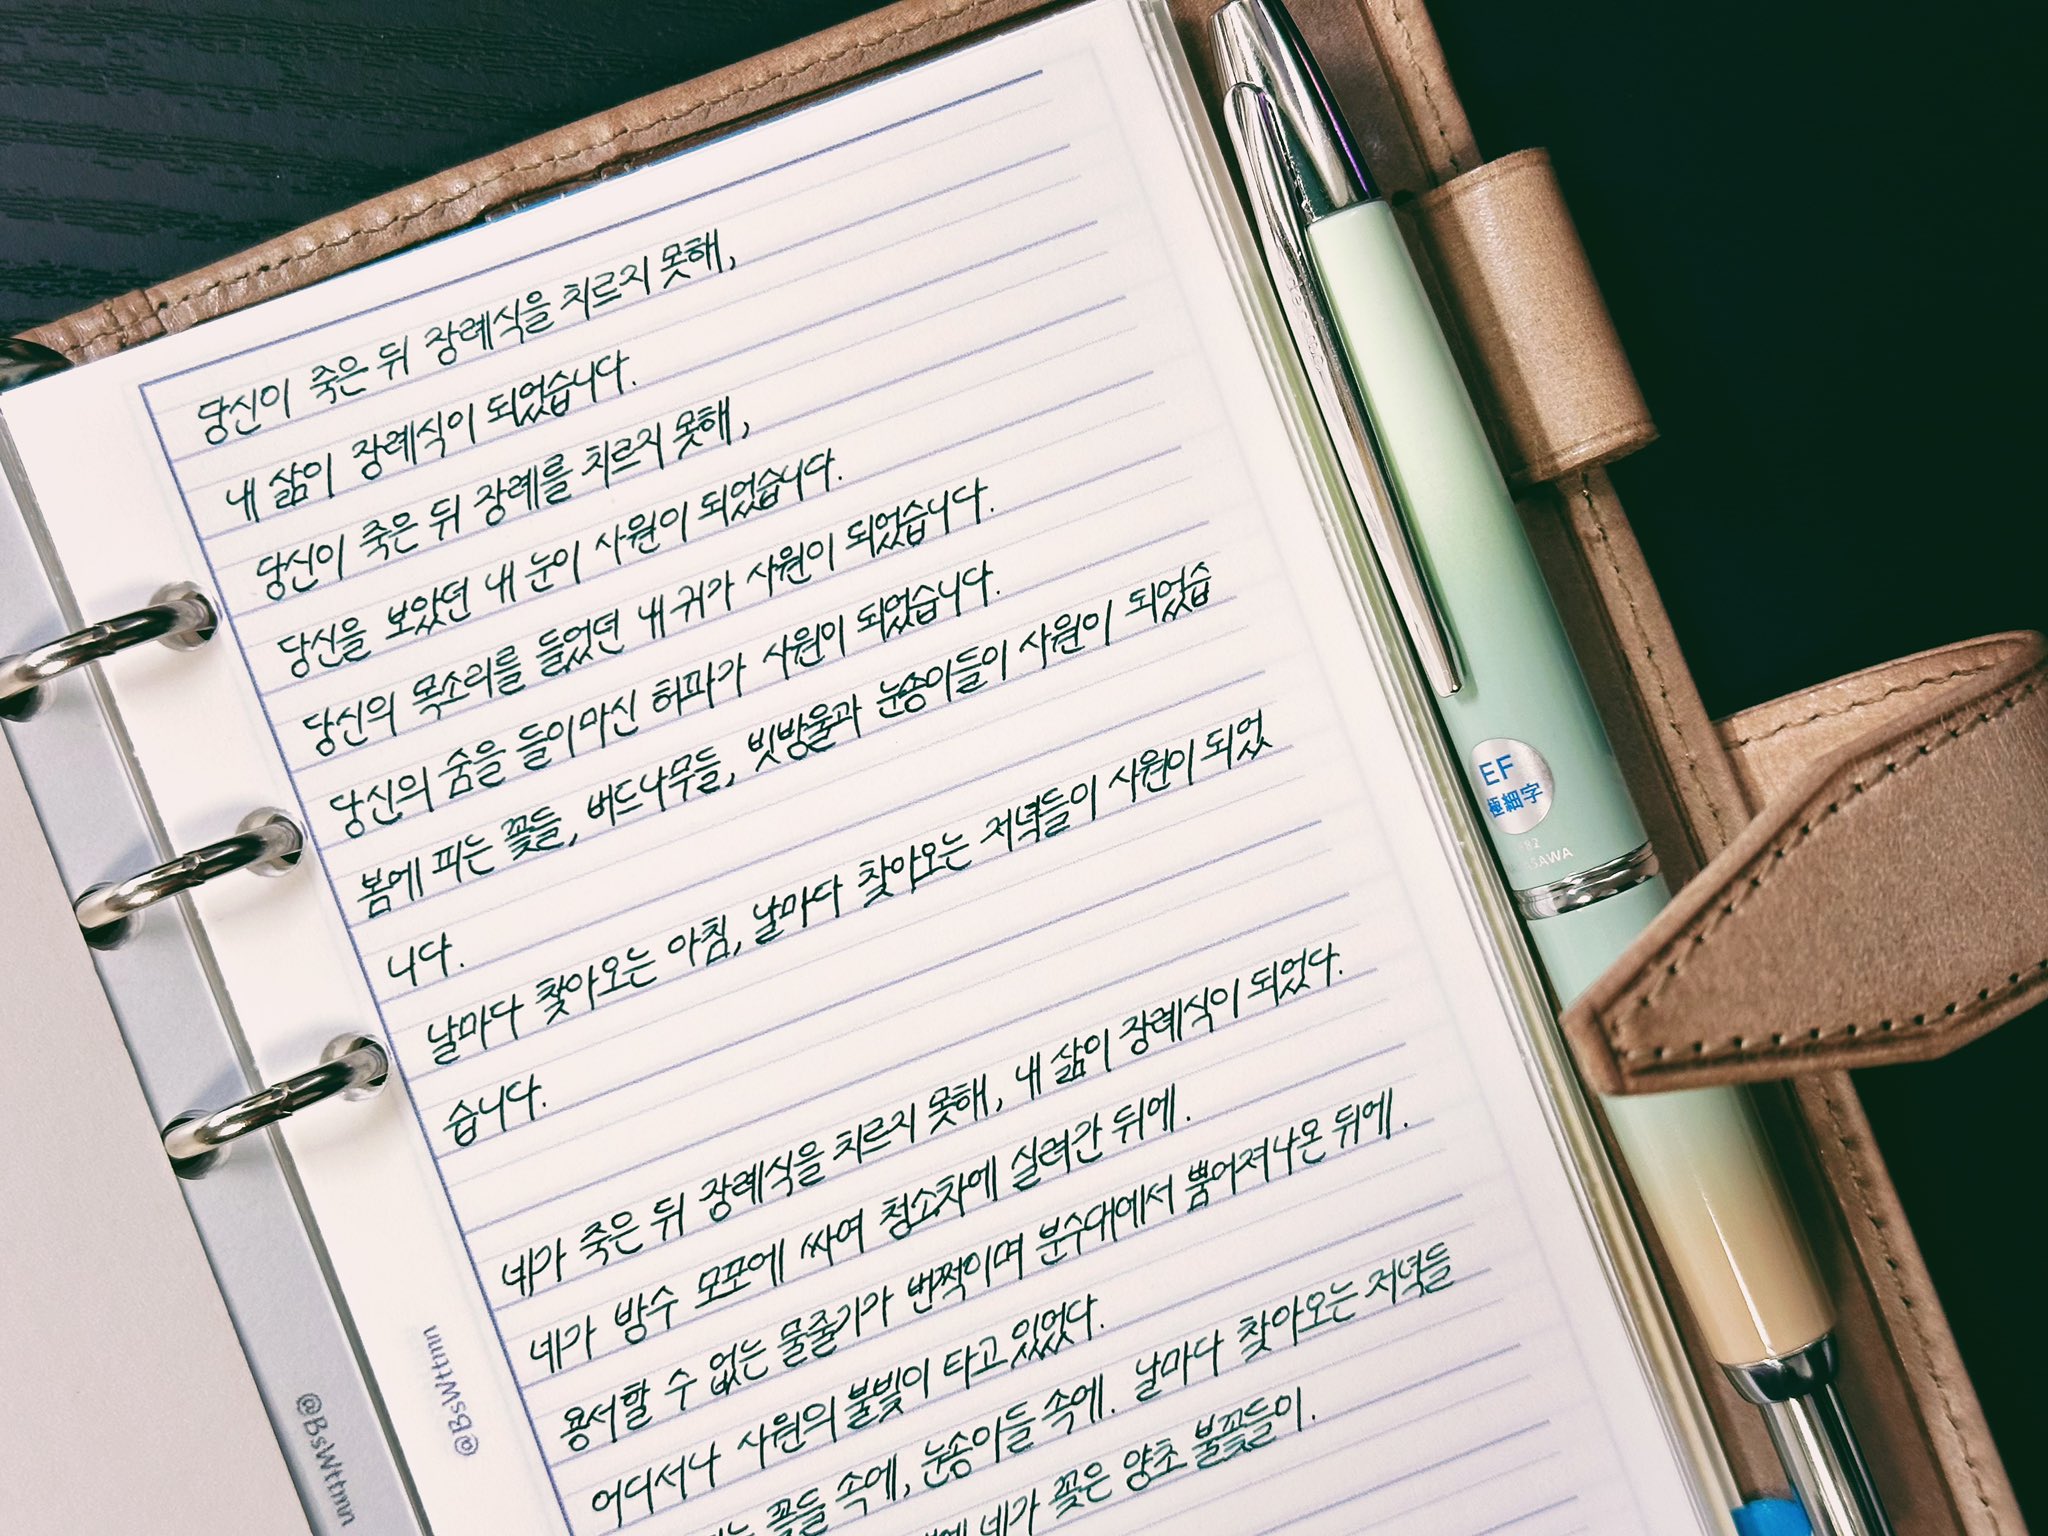 당신이 죽은 뒤 장례식을 치르지 못해,
내 삶이 장례식이 되었습니다.
당신이 죽은 뒤 장례를 치르지 못해,
당신을 보았던 내 눈이 사원이 되었습니다.
당신의 목소리를 들었던 내 귀가 사원이 되었습니다.
당신의 숨을 들이마신 허파가 사원이 되었습니다.
봄에 피는 꽃들, 버드나무들, 빗방울과 눈송이들이 사원이 되었습
니다.
날마다 찾아오는 아침, 날마다 찾아오는 저녁들이 사원이 되었
습니다.
네가 죽은 뒤 장례식을 치르지 못해, 내 삶이 장례식이 되었다.
네가 방수 모포에 싸여 청소차에 실려간 뒤에.
용서할 수 없는 물줄기가 번쩍이며 분수대에서 뿜어져나온 뒤에.
어디서나 사원의 불빛이 타고 있었다.
꽃들 속에, 눈송이들 속에. 날마다 찾아오는 저녁들
네가 꽂은 양초 불꽃들이.
@BsWttnn
@BsWttnn
EF
極細字